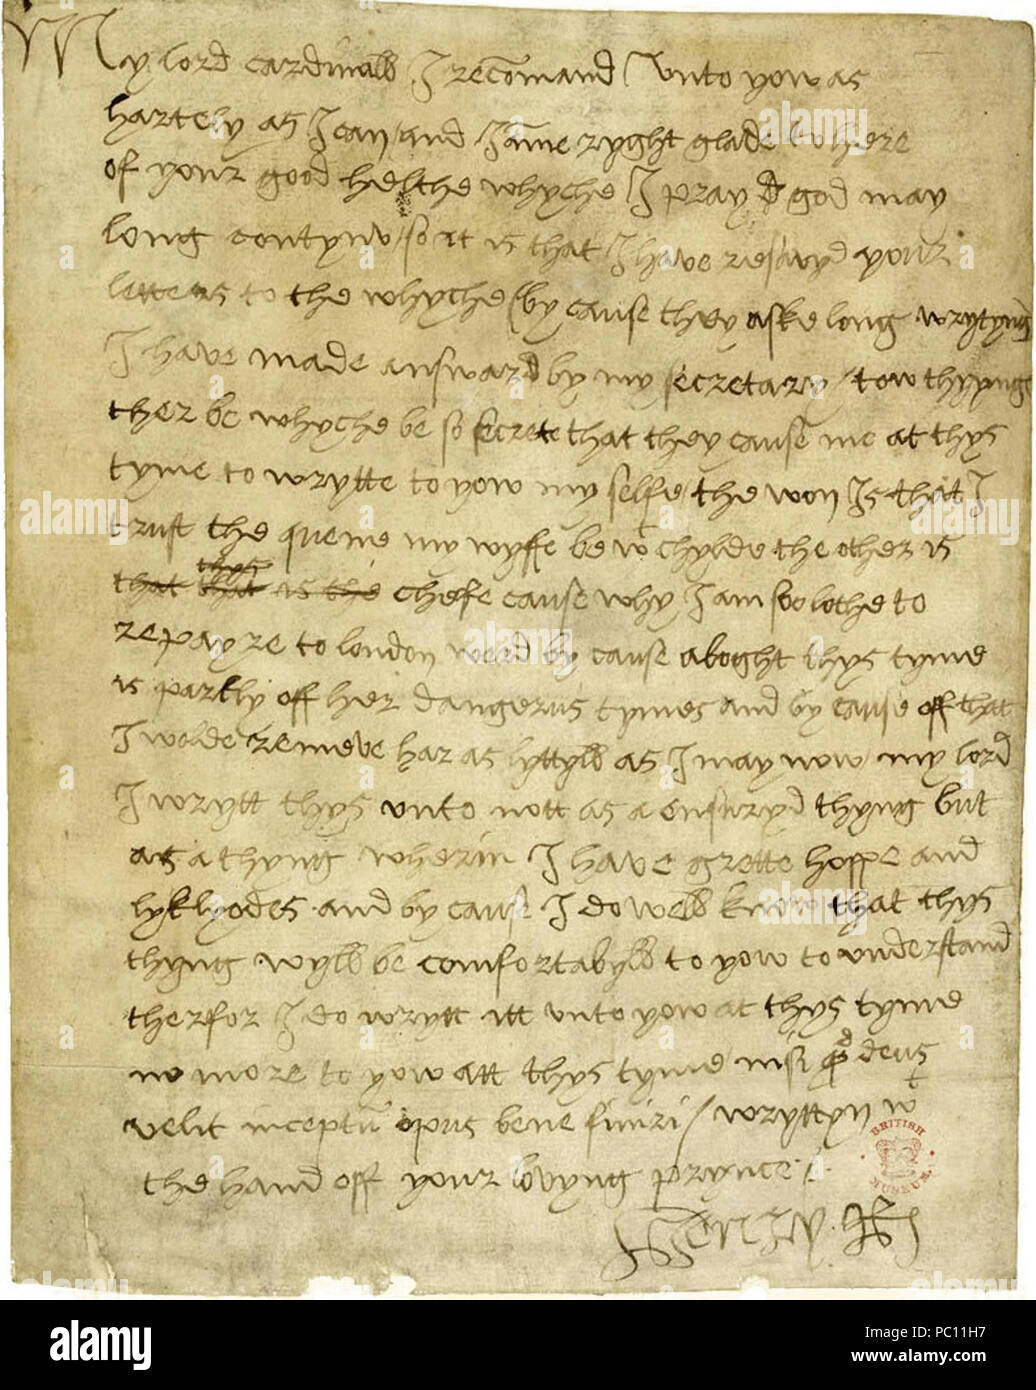 My lord cardinall I recommand unto yow as
hartely as I can and I ame ryght glade to here
of your good helthe whyche I pray god may
long contynu / so it is that I have resavyd your
letters to the whyche (by cause they aske long wrytyng)
I have made answard by my secretary / tow thyngs
ther be whyche be so secrete that they cause me at thys
tyme to wrytte to yow my selfe / the won Is that I
trust the quene my wyffe be wt chylde the other is
that that thys is the chefe cause why I am soo lothe to
repayre to london werd by cause aboght thys tyme
is partly off her dangerus tymes and by cause off that
I wolde remeve har as lyttyll as I may now / my lord
I wrytt thys unto nott as a ensuryd thyng but
as a thyng wherin I have grette hoppe and
lyklyodes and by cause I do well know that thys
thyng wyll be comfortabyll to yow to understand
therfor I do wrytt itt unto yow at thys tyme
no more to yow att thys tyme / nisi qd deus
velit inceptu opus bene finiri / wryttyn wt
the hand off your lovyng prynce
Henry R
BRITISH MUSEUM
alamy
Image ID: PC11H7
www.alamy.com